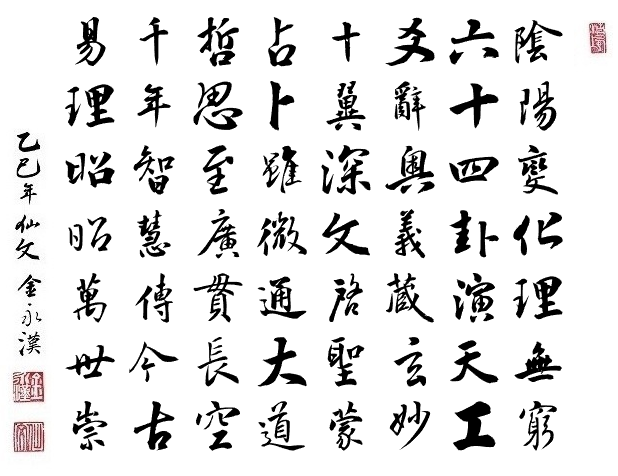 陰陽變化理無窮
六十四卦演天工
爻辭奧義藏玄妙
十翼深文啓聖蒙
占卜雖微通大道
哲思至廣貫長空
千年智慧傳今古
易理昭昭萬世崇
乙巳年仙文金永漢